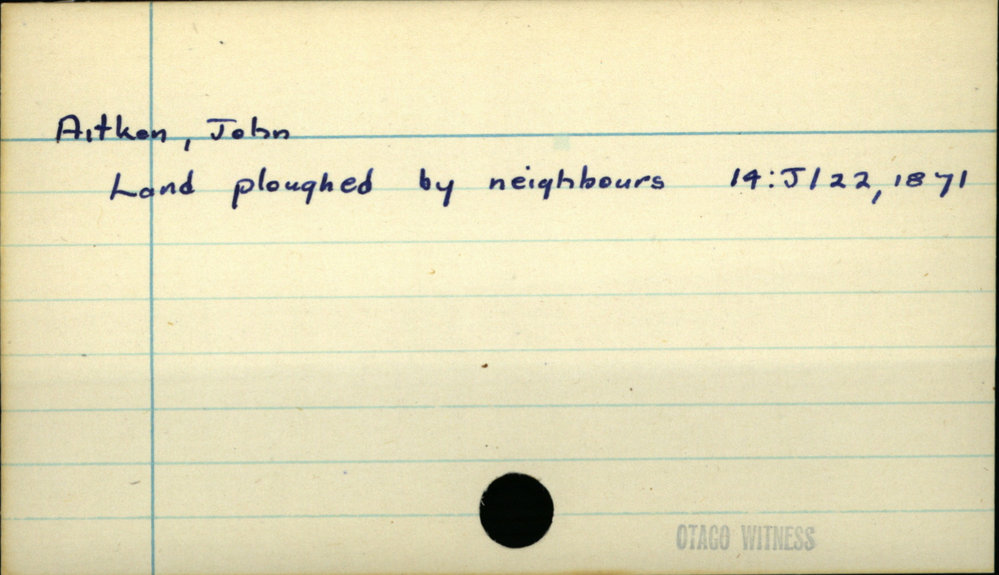 Aitken, John
Land ploughed by neighbours 14:Jl 22, 1871
OTAGO WITNESS